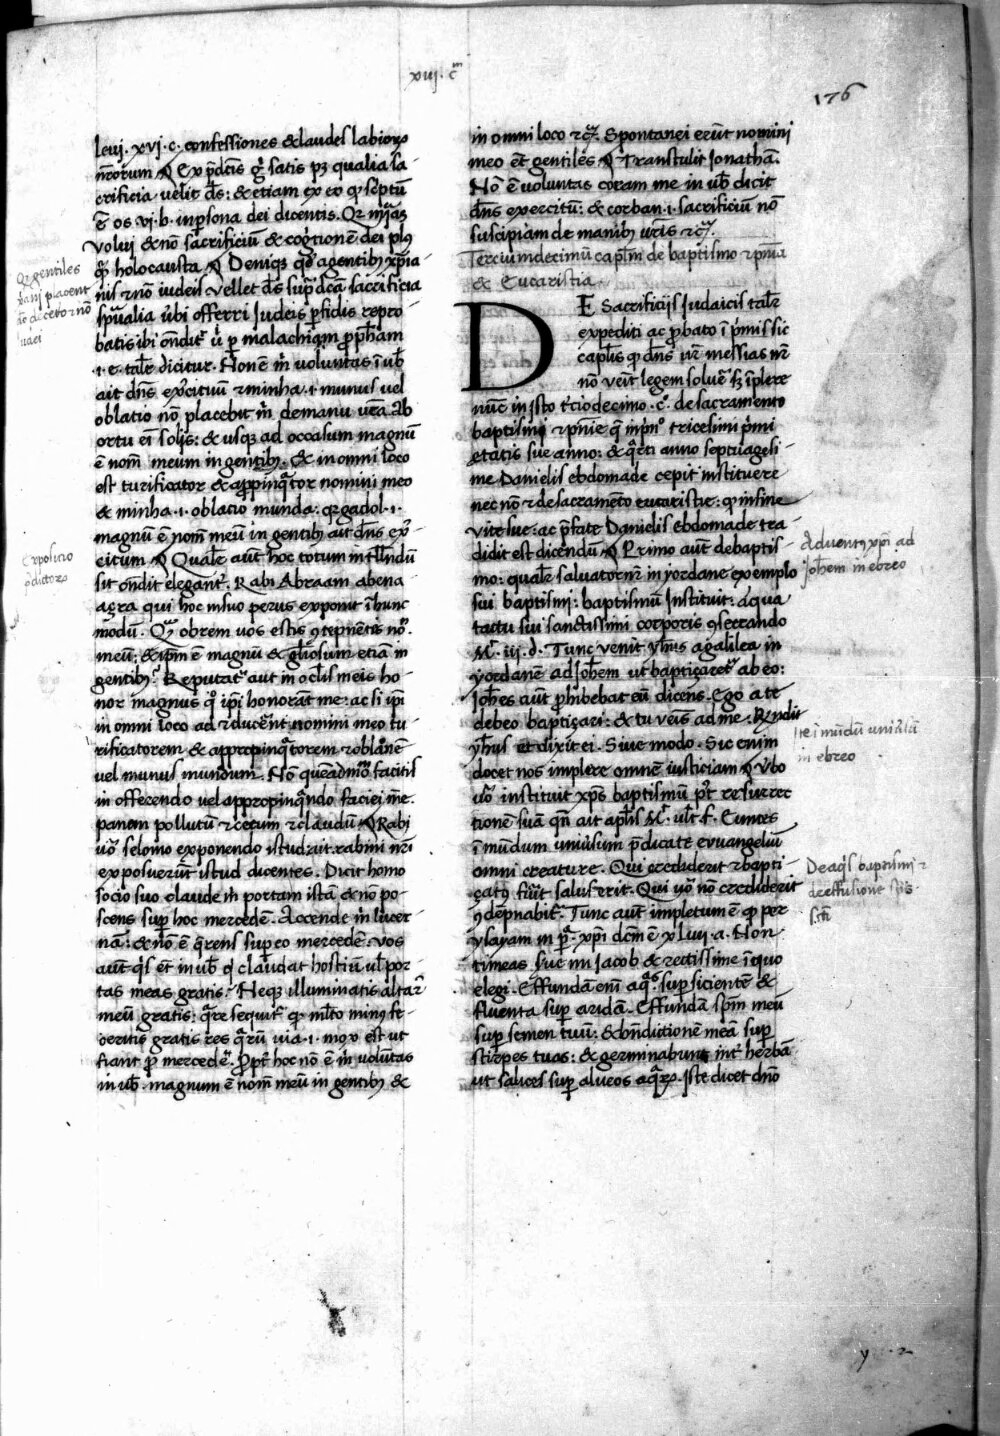 xiij. cm
176
leuj. xvj. c. confessiones & laudes labioꝝ
nr̄orum ¶ Ex p̄dc̄is gͥ satis pꝫ qualia sa
crificia uelit ds̄: & etiam ex eo qͬ sc̄ptū
ē os. vj. b. in p̄sona dei dicentis. Qꝛ mīaꝫ
volui & nō sacrificiū & cognitionē dei plꝰ
qͣ holocausta ¶ Deniqꝫ qͩ agentibꝰ xp̄ia-
nis ⁊ nō iudeis vellet ds̄ sup dc̄a sacrificia
spūalia ubi offerri Judeis ꝑfidis repro
batis ibi ondit̄ ꝑ malachiam ꝓph̄am
.i. c. talr̄ dicitur. Non ē m̄ voluntas ī ub̄
ait dn̄s exercituū ⁊ minha .i. munus uel
oblatio nō placebit m̄ de manu ur̄a Ab
ortu ei solis: & usqꝫ ad occasum magnū
ē nom̄ meum in gentibꝰ. & in omni loco
est turificator & appinqͣtor nomini meo
& minha .i. oblatio munda: qꝛ gadol .i.
magnū ē nom̄ meū in gentibꝰ ait dn̄s exer̄
citum ¶ Qualr̄ aut̄ hoc totum intlldū
sit ondit elegant̄. Rabi Abraam abena
agra qui hoc in suo perus exponit ī hunc
modū. Qͣ obrem uos estis ꝯtēpnentis no͞.
meū: & ip̄m ē magnū & gl̄iosum etiā in
gentibꝰ. Reputat̄ aut̄ in oclis meis ho-
nor magnus qͩ ip̄i honorant me: ac si ip̄i
in omni loco ad⁊ducer̄ent nomini meo tu
rificatorem & appropinqͣtorem ⁊ oblōnē
uel munus mundum. Nō queadmōꝫ facitis
in offerendo uel appropinqͣndo faciei m̄e.
panem pollutū ⁊ cecum ⁊ claudū ¶ Rabi
uͦ selomo exponendo istud ait rabini nr̄i
exposuer̄ut istud dicentes. Dicit homo
socio suo claude m̄ portam istā & nō po-
scens sup hoc mercedē. Accende m̄ lucer
nā: & nō ē q̄rens sup eo mercedē. Vos
aūt qͥs ēt in ub̄ qͥ claudat hostiū ul̄ por
tas meas gratis. Neqꝫ illuminatis altar̄
meū gratis: qͣre sequit̄ qͬ ml̄to minꝰ fe-
ceritis gratis res qͣrū uia .i. moꝰ est ut
fiant ꝓ mercede. ꝓpt̄ hoc nō ē m̄ volūtas
in ub̄. magnum ē nom̄ meū in gentibꝰ &
in omni loco ⁊cͣ. Spontanei erūt nomini
meo ēt gentiles ¶ Transtulit Jonathā.
Nō ē voluntas coram me in ub̄ dicit
dn̄s exercitū: & corban .i. sacrificiū nō
suscipiam de manibꝰ ur̄is ⁊cͣ.
Tercium decimū capl̄m de baptismo ⁊ pn̄ia
& Eucaristia
DE Sacrificijs Judaicis talr̄
expediti ac ꝓbato ī p̄missis
caplis qͬ dn̄s nr̄ messias nr̄
nō venit legem soluē sꝫ īplere
nūc in isto t̄ciodecimo .cͦ. de sacramento
baptismi ⁊ pn̄ie q̄ inp̄nͦ tricesimi p̄mi
etatis sue anno: & qͣrti anno septuagesi-
me Danielis ebdomade cepit instituere
nec nō ⁊ de sacramēto eucaristie: qͬ in fine
vite sue: ac p̄fate Danielis ebdomade tra-
didit est dicendū ¶ Primo aūt de baptis-
mo: qualr̄ saluator nr̄ in yordane exemplo
sui baptismi: baptismū instituit: aqua
tactu sui sanctissimi corporis ꝯsecrando
Mͬ. iij. d. Tunc venit yhūs a galilea in
yordanē ad Joh̄em ut baptizaret̄ ab eo:
Joh̄es aūt ꝓhibebat eū dicens. Ego a te
debeo baptizari: & tu venis ad me. Rn̄dit
yhūs et dixit ei. Sine modo. Sic enim
docet nos implere omnē iusticiam ¶ Vbo
uͦ instituit xp̄s baptismū pͦt resurrec
tionē suā qn̄ ait ap̄lis Mͬ. ult̄. f. Euntes
ī mūdum uniūsum p̄dicate euuangeliū
omni creature. Qui crediderit ⁊ bapti-
catꝰ fūit saluꝰ erit. Qui uͦ nō crediderit
ꝯdēpnabit̄. Tunc aūt impletum ē qͬ per
ysayam in pͣ. xp̄i dcm̄ ē xliiij. a. Non
timeas sūe mi Jacob & rectissime ī quo
elegi. Effundā em̄ aqͣs sup sicientē &
fluenta sup aridā. Effundā sp̄m meū
sup semen tuū: & bn̄dictionē meā sup
stirpes tuas: & germinabunt int̄ herbā
ut salices sup alueos aqͣꝝ. Iste dicet dn̄o
Qꝛ gentiles
xp̄ianj placent
deo ⁊ nō
iudei
Exposicio
p̄dictoꝝ
Aduentꝰ xp̄i ad
Joh̄em in ebreo
Ite ī mūdū uniūsū
in ebreo
De aqͥs baptismi ⁊
de effusione sp̄s
sc̄ti
y 2